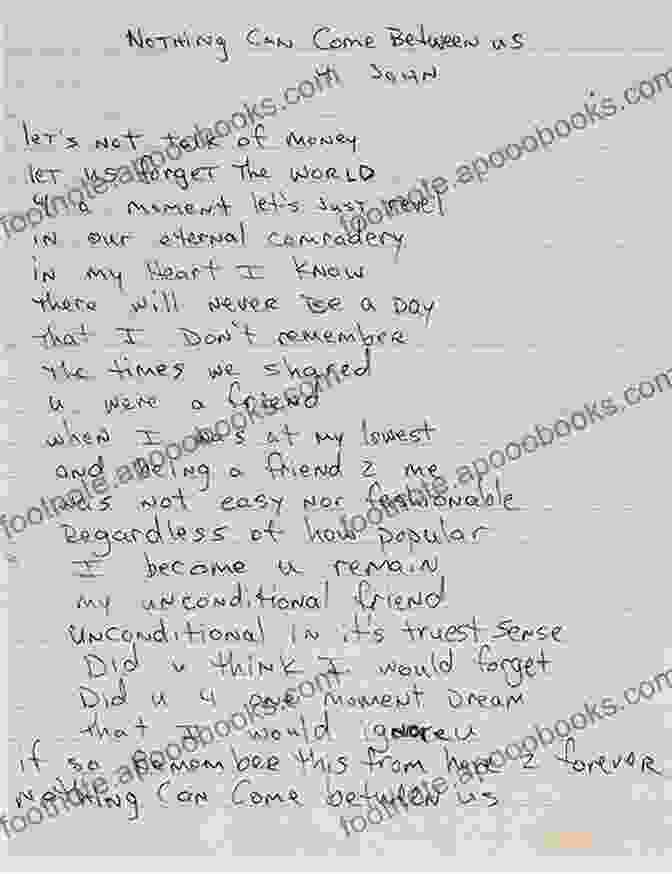 NOTHING CAN COME BETWEEN US
4 JOHN
let's not talk of money
let us forget the world
4 a moment let's just revel
in our eternal comradery
in my Heart I know
there will never be a day
that I don't remember
the times we shared
u were a friend
when I was at my lowest
and being a friend 2 me
was not easy nor fashionable
Regardless of how popular
I become u remain
my unconditional friend
unconditional in it's truest sense
Did u think I would forget
Did u 4 one moment dream
that I would ignore u
if so Remember this from here 2 forever
Nothing Can Come between us
footnote.apooobooks.com
footnote.apooobooks.com
footnote.apooobooks.com
footnote.apooobooks.com
footnote.apooobooks.com
footnote.apooobooks.com